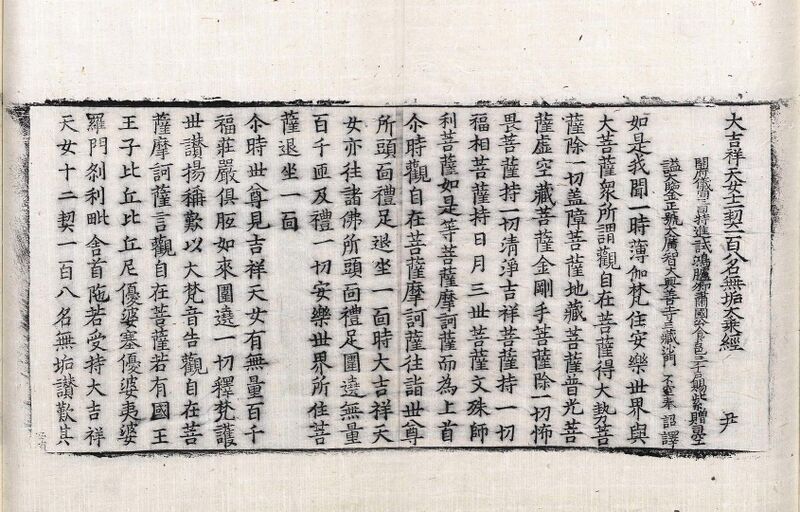 大吉祥天女十二契一百八名無垢大乘經 尹
開府儀同三司特進試鴻臚卿肅國公食邑三千戶賜紫贈司空
謚大鑒正號大廣智大興善寺三藏沙門 不空奉 詔譯
如是我聞一時薄伽梵住安樂世界與
大菩薩衆所謂觀自在菩薩得大勢菩
薩除一切盖障菩薩地藏菩薩普光菩
薩虛空藏菩薩金剛手菩薩除一切怖
畏菩薩持一切清淨吉祥菩薩持一切
福相菩薩持日月三世菩薩文殊師
利菩薩如是等菩薩摩訶薩而為上首
尒時觀自在菩薩摩訶薩往詣世尊
所頭面禮足退坐一面時大吉祥天
女亦往諸佛所頭面禮足圍遶無量
百千匝及禮一切安樂世界所住菩
薩退坐一面
尒時世尊見吉祥天女有無量百千
福莊嚴俱胝如來圍遶一切釋梵護
世讃揚稱歎以大梵音告觀自在菩
薩摩訶薩言觀自在菩薩若有國王
王子比丘比丘尼優婆塞優婆夷婆
羅門剎利毗舍首陁若受持大吉祥
天女十二契一百八名無垢讃歎其